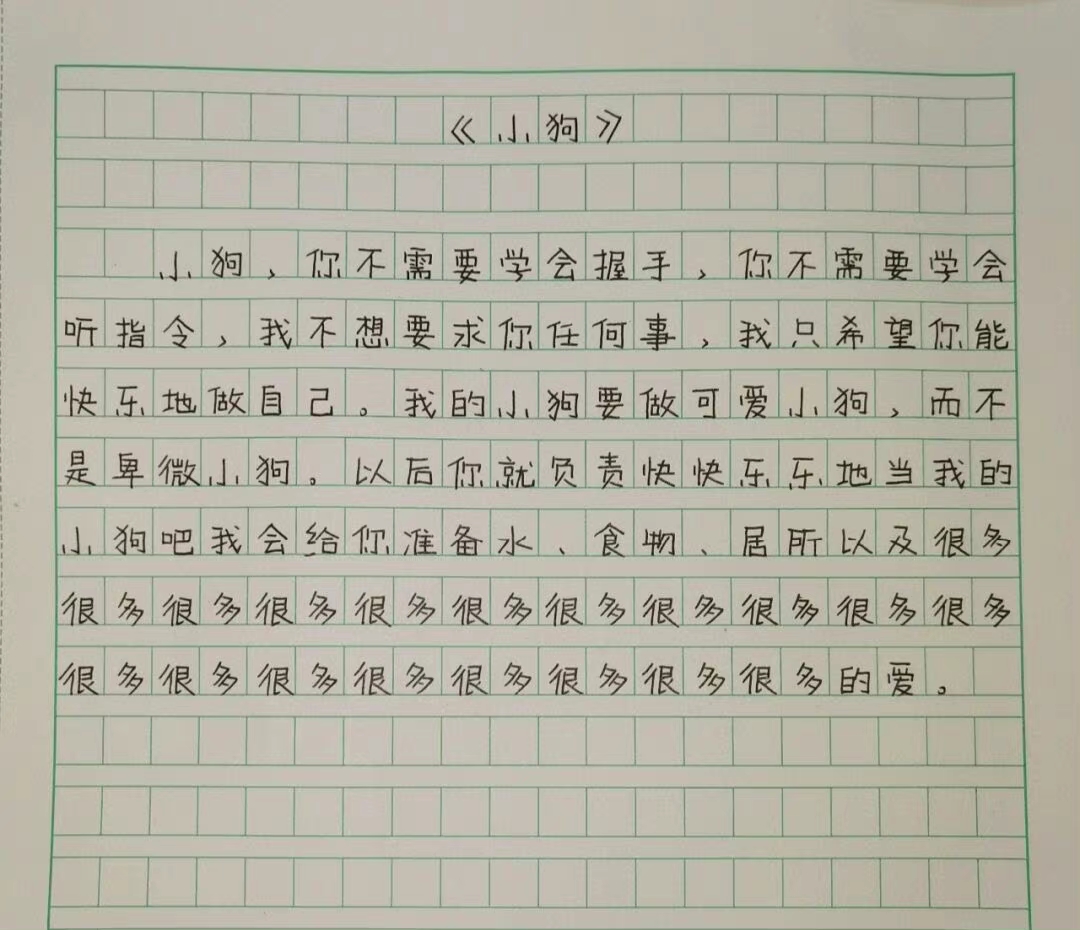 《小狗》
小狗，你不需要学会握手，你不需要学会
听指令，我不想要求你任何事，我只希望你能
快乐地做自己。我的小狗要做可爱小狗，而不
是卑微小狗。以后你就负责快快乐乐地当我的
小狗吧我会给你准备水、食物、居所以及很多
很多很多很多很多很多很多很多很多很多很多
很多很多很多很多很多很多很多很多的爱。